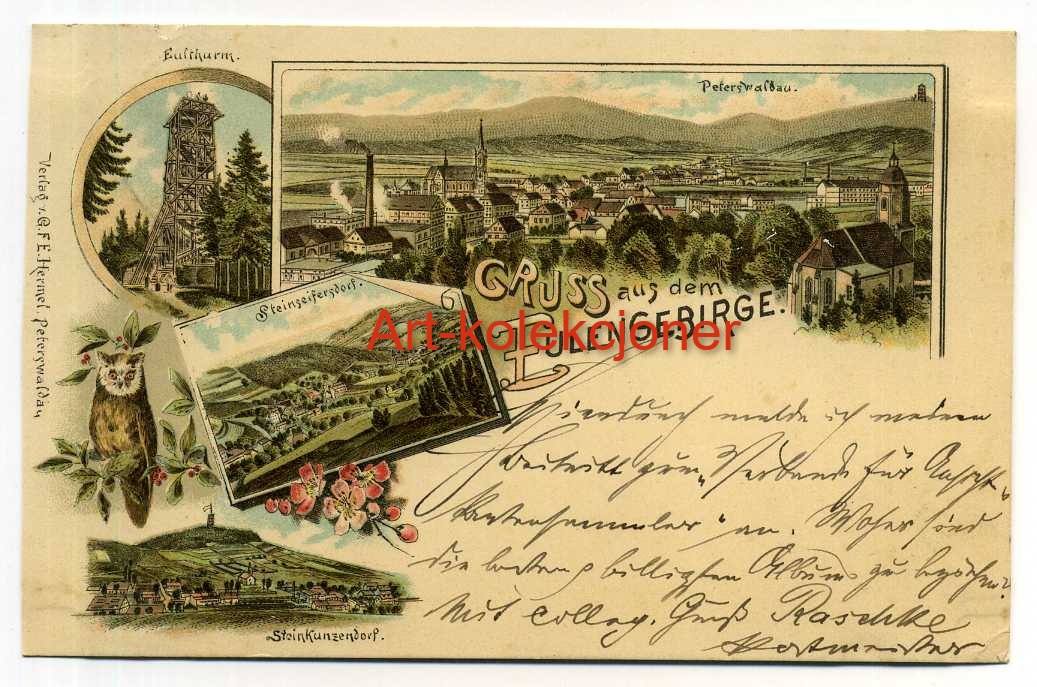 Eulthurm.
Peterswaldau.
Verlag v. G. F. E. Hermel, Peterswaldau
Steinseifersdorf.
GRUSS aus dem
EULENGEBIRGE.
Art-kolekcjoner
Hierdurch melde ich meinen
Beitritt zum "Verbande für Ansicht"
kartensammler" an. Woher sind
die besten billigsten Albums zu beziehen?
Mit colleg. Gruß Raschke
Postmeister
Steinkunzendorf.